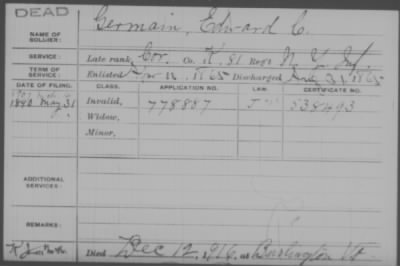 DEAD
NAME OF SOLDIER: Germain, Edward C.
SERVICE: Late rank, Cor. Co. K, 81 Reg't N. Y. Inf.
TERM OF SERVICE: Enlisted 1865 Discharged Aug 31 1865
DATE OF FILING. CLASS. APPLICATION NO. LAW. CERTIFICATE NO.
1890 May 31 Invalid, 778887 538493
Widow,
Minor,
ADDITIONAL SERVICES:
REMARKS:
Died Dec 12, 1916, at Burlington Vt.